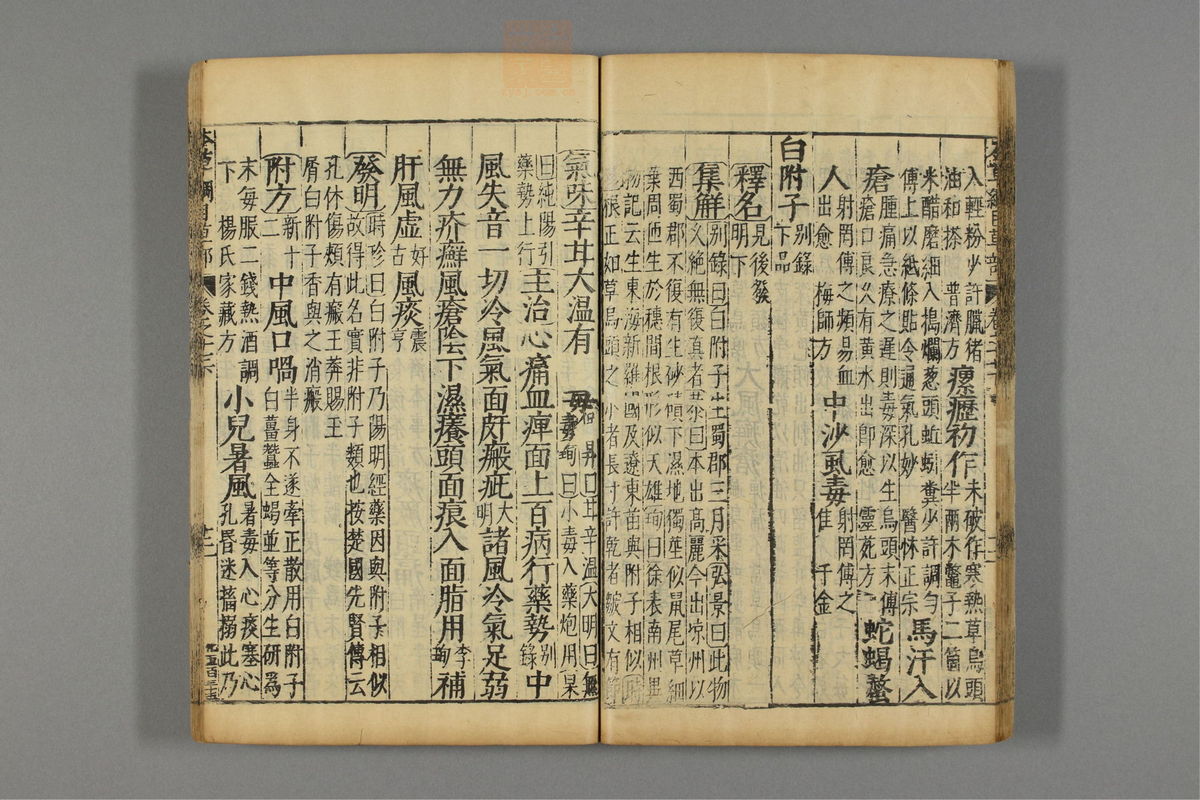 入輕粉少許臘猪
油和搽普濟方
瘰癧初作未破作寒熱草烏頭
半兩木鱉子二箇以
米醋磨細入搗爛葱頭蚯蚓糞少許調勻
傅上以紙條貼令通氣孔妙醫林正宗
馬汗入
瘡腫痛急療之遲則毒深以生烏頭末傅
瘡口良久有黄水出即愈靈苑方
蛇蝎螫
人射罔傅之頻易血
出愈梅師方
中沙虱毒射罔傅之
佳千金
白附子別錄
下品
釋名見後發
明下
集解別錄曰白附子生蜀郡三月采弘景曰此物
久絶無復真者恭曰本出高麗今出凉州以
西蜀郡不復有生砂磧下濕地獨莖似鼠尾草細
葉周匝生於穗間根形似天雄珣曰徐表南州異
物記云生東海新羅國及遼東苗與附子相似時
根正如草烏頭之小者長寸許乾者皺文有節
氣味辛甘大温有
小毒珣曰小毒入藥炮用杲
曰純陽引
藥勢上行
主治心痛血痺面上百病行藥勢別
錄中
風失音一切冷風氣面皯瘢疵大
明諸風冷氣足弱
無力疥癬風瘡陰下濕癢頭面痕入面脂用李
珣補
肝風虚好
古風痰震
亨
發明時珍曰白附子乃陽明經藥因與附子相似
故得此名實非附子類也按楚國先賢傳云
孔休傷頰有瘢王莽賜玉
屑白附子香與之消瘢
附方新十
二
中風口喎半身不遂牽正散用白附子
白薑蠶全蝎並等分生研爲
末每服二錢熱酒調
下楊氏家藏方
小兒暑風暑毒入心痰塞心
孔昏迷搐搦此乃